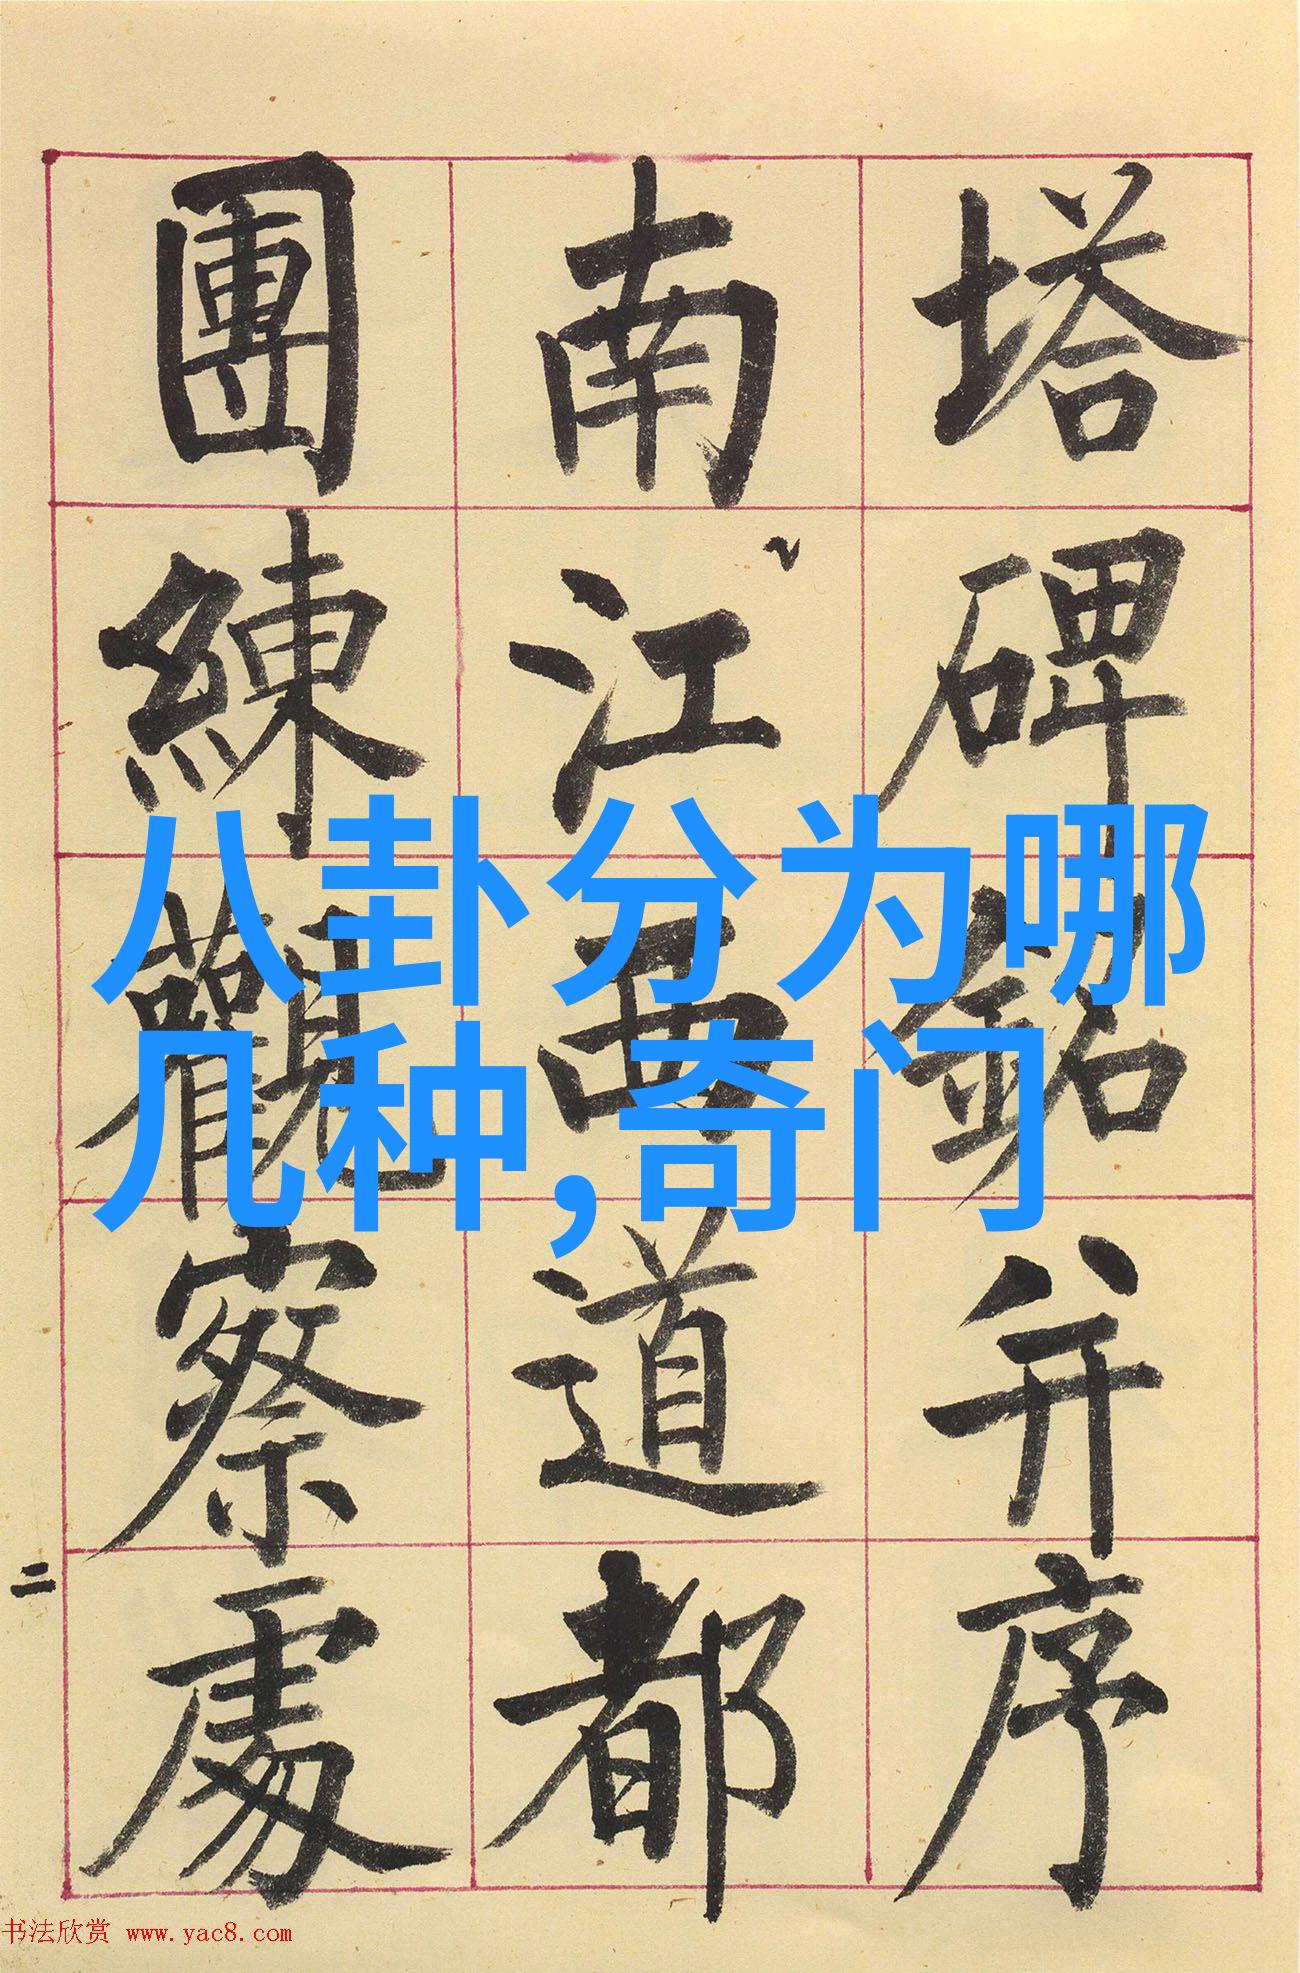 塔碑銘并序
南江西道都
團練觀察處
二
八卦分为哪
几种,奇门
书法欣赏 www.yac8.com